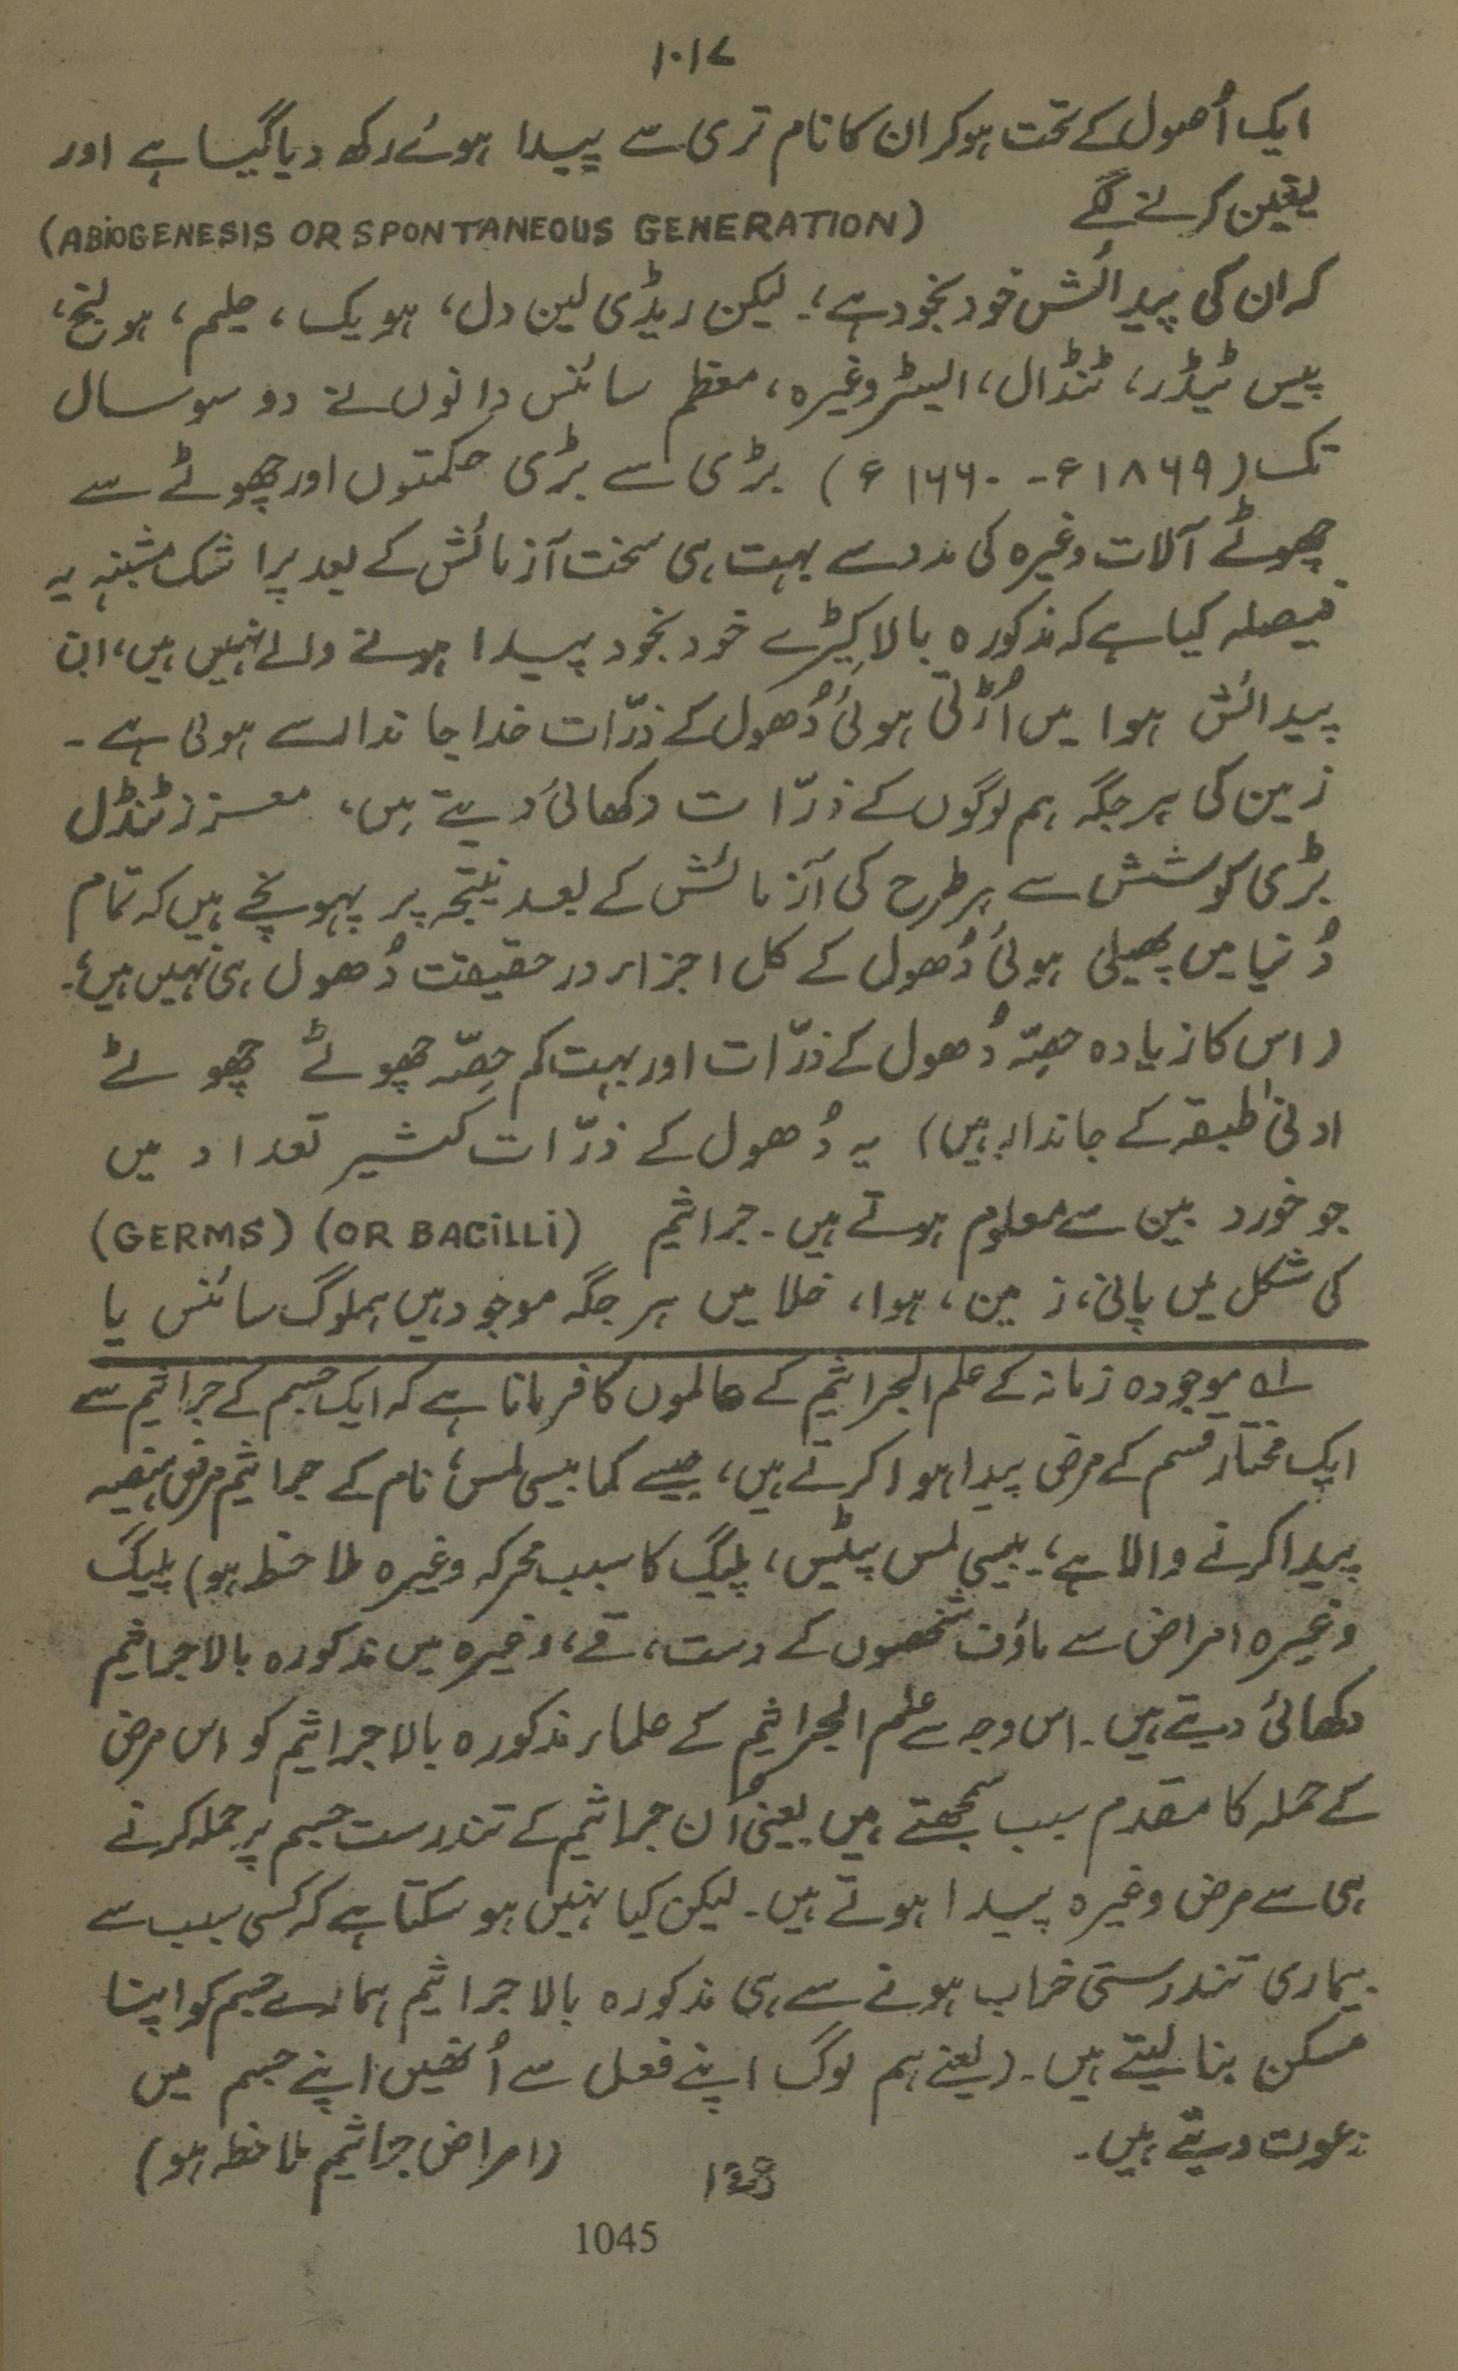 ۱۰۱۷
ایک اُصول کے تحت ہوکر ان کا نام تری سے پیدا ہوئے رکھ دیا گیا ہے اور
یقین کرنے لگے (ABIOGENESIS OR SPONTANEOUS GENERATION)
کہ ان کی پیدائش خود بخود ہے؛ لیکن ریڈی لین دل، ہویک، حیلم، ہولنج،
پیس ٹیڈر، ٹنڈال، الیسٹر وغیرہ، معظم سائنس دانوں نے دو سو سال
تک (۱۸۶۹ء -۱۶۶۰ء) بڑی سے بڑی حکمتوں اور چھوٹے سے
چھوٹے آلات وغیرہ کی مدد سے بہت ہی سخت آزمائش کے بعد برا شک مشبنہ یہ
فیصلہ کیا ہے کہ مذکورہ بالا کیڑے خود بخود پیدا ہونے والے نہیں ہیں، ان
پیدائش ہوا میں اُڑتی ہوئی دُھول کے ذرّات خدا جاندار سے ہوتی ہے۔
زمین کی ہر جگہ ہم لوگوں کے ذرّات دکھائی دیتے ہیں، معزز ٹنڈل
بڑی کوشش سے ہر طرح کی آزمائش کے بعد نتیجہ پر پہونچے ہیں کہ تمام
دُنیا میں پھیلی ہوئی دُھول کے کل اجزاء درحقیقت دُھول ہی نہیں ہیں؛
(اس کا زیادہ حصّہ دُھول کے ذرّات اور بہت کم حصّہ چھوٹے چھوٹے
ادنیٰ طبقہ کے جاندار ہیں) یہ دُھول کے ذرّات کثیر تعداد میں
جو خورد بین سے معلوم ہوتے ہیں۔ جراثیم (GERMS) (OR BACILLI)
کی شکل میں پانی، زمین، ہوا، خلا میں ہر جگہ موجود ہیں ہملوگ سائنس یا
لہ موجودہ زمانہ کے علم الجراثیم کے عالموں کا فرمانا ہے کہ ایک جسم کے جراثیم سے
ایک مختار قسم کے مرض پیدا ہوا کرتے ہیں، جیسے کما بیسی لس، نام کے جراثیم مرض ہیضہ
پیدا کرنے والا ہے، بیسی لس پیٹس، پلیگ کا سبب محرکہ وغیرہ ملاحظہ ہو) پلیگ
وغیرہ امراض سے ماؤف شخصوں کے دست، قے، وغیرہ میں مذکورہ بالا جراثیم
دکھائی دیتے ہیں۔ اس وجہ سے علم الجراثیم کے علماء مذکورہ بالا جراثیم کو اس مرض
کے حملہ کا مقدم سبب سمجھتے ہیں یعنی اُن جراثیم کے تندرست جسم پر حملہ کرنے
ہی سے مرض وغیرہ پیدا ہوتے ہیں۔ لیکن کیا نہیں ہو سکتا ہے کہ کسی سبب سے
ہماری تندرستی خراب ہونے سے ہی مذکورہ بالا جراثیم ہمارے جسم کو اپنا
مسکن بنا لیتے ہیں۔ (یعنے ہم لوگ اپنے فعل سے اُنھیں اپنے جسم میں
دعوت دیتے ہیں۔ (امراض جراثیم ملاحظہ ہو)
128
1045